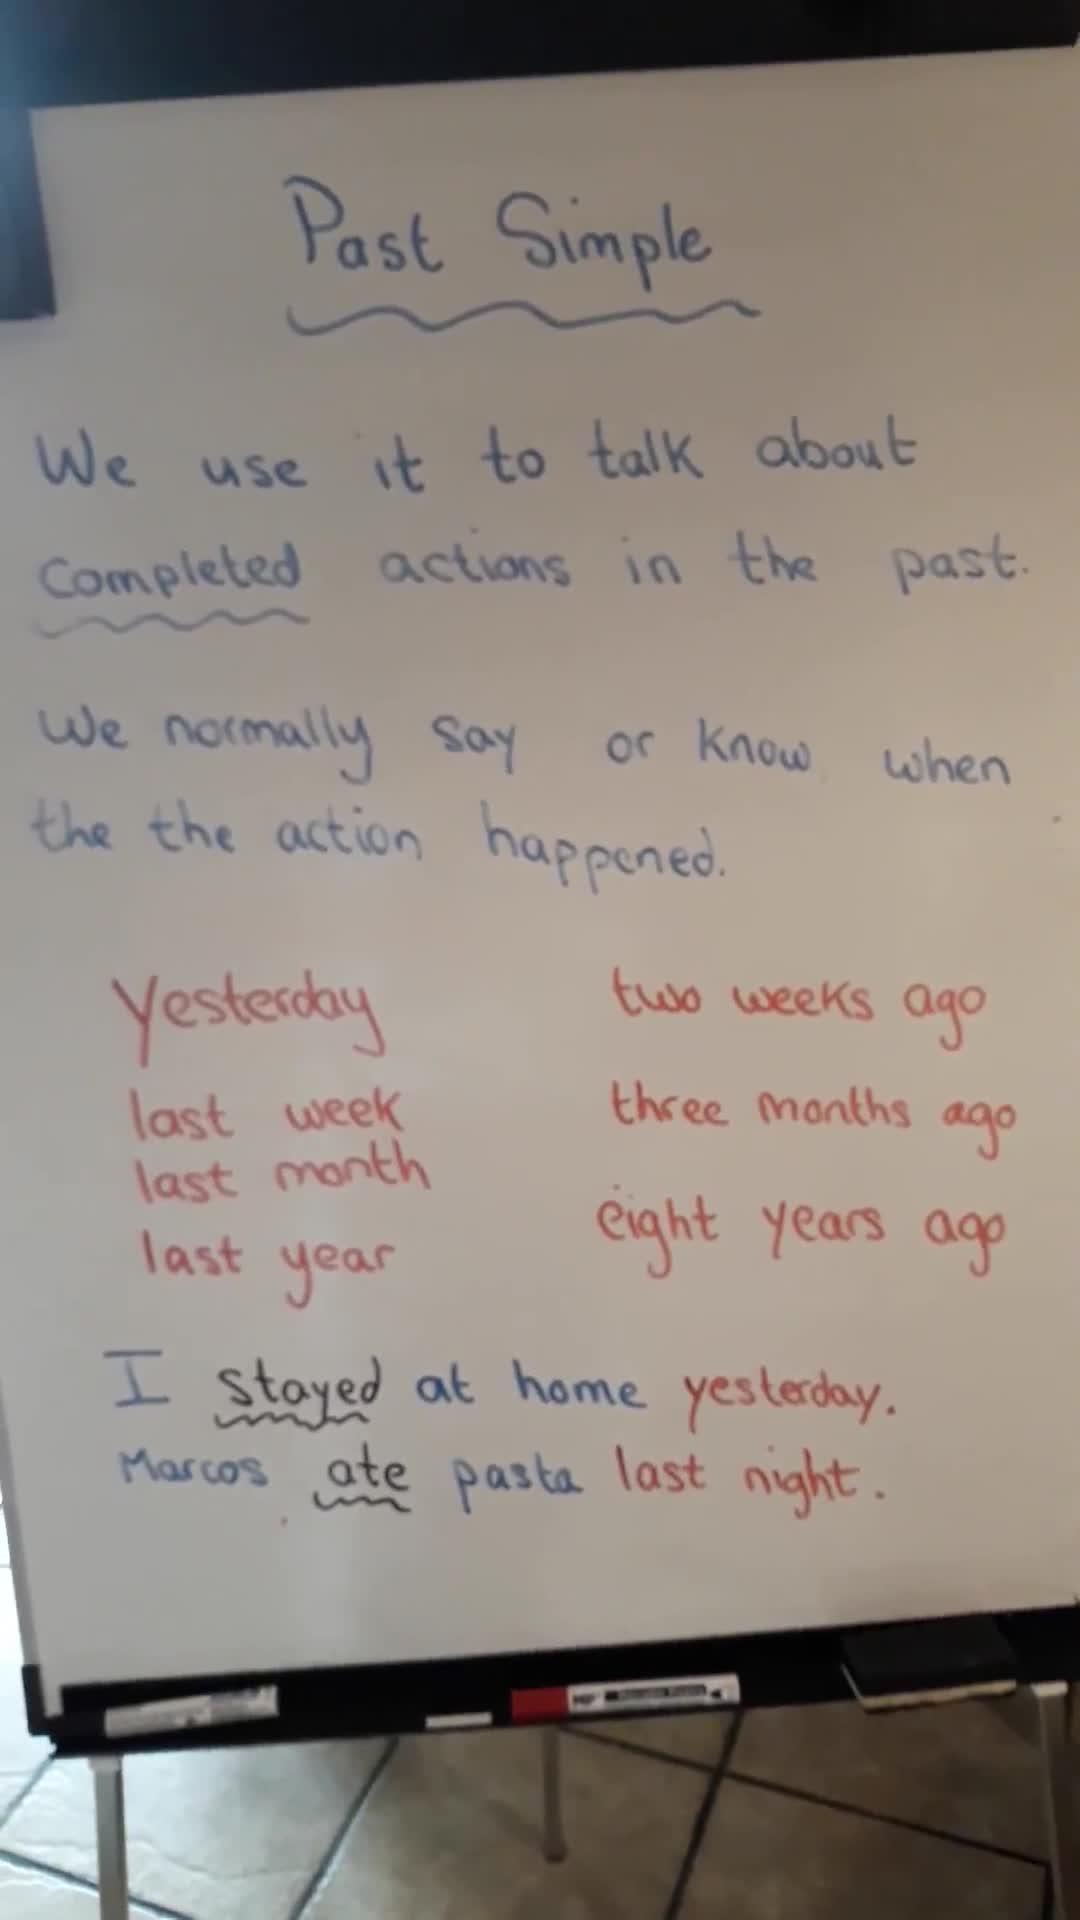 Past Simple
We use it to talk about
completed actions in the past.
We normally say or know when
the the action happened.
Yesterday two weeks ago
last week three months ago
last month
last year eight years ago
I stayed at home yesterday.
Marcos ate pasta last night.